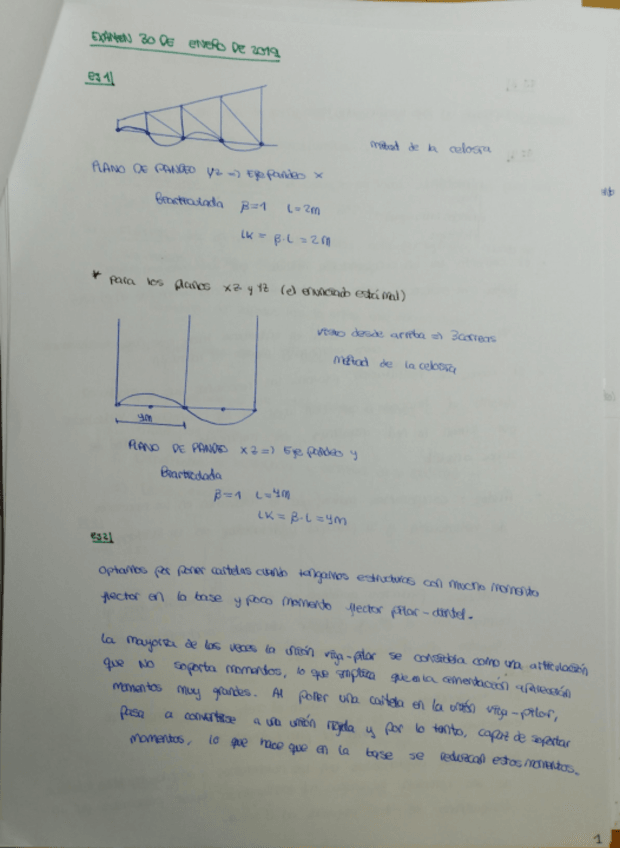 EXAMEN 30 DE ENERO DE 2019
ej 1)
mitad de la celosía
PLANO DE PANDEO YZ => Eje pandeo x
Biarticulada β=1 L=2m
LK = β·L = 2m
* Para los planos xz y yz (el enunciado está mal)
visto desde arriba => 3 correas
mitad de la celosía
4m
PLANO DE PANDEO xz => Eje pandeo y
Biarticulada
β=1 L=4m
LK = β·L = 4m
ej 2)
Optamos por poner cartelas cuando tengamos estructuras con mucho momento
flector en la base y poco momento flector pilar-dintel.
La mayoría de las veces la unión viga-pilar se considera como una articulación
que NO soporta momentos, lo que implica que en la cimentación aparezcan
momentos muy grandes. Al poner una cartela en la unión viga-pilar,
pasa a convertirse a una unión rígida y por lo tanto, capaz de soportar
momentos, lo que hace que en la base se reduzcan estos momentos.
1